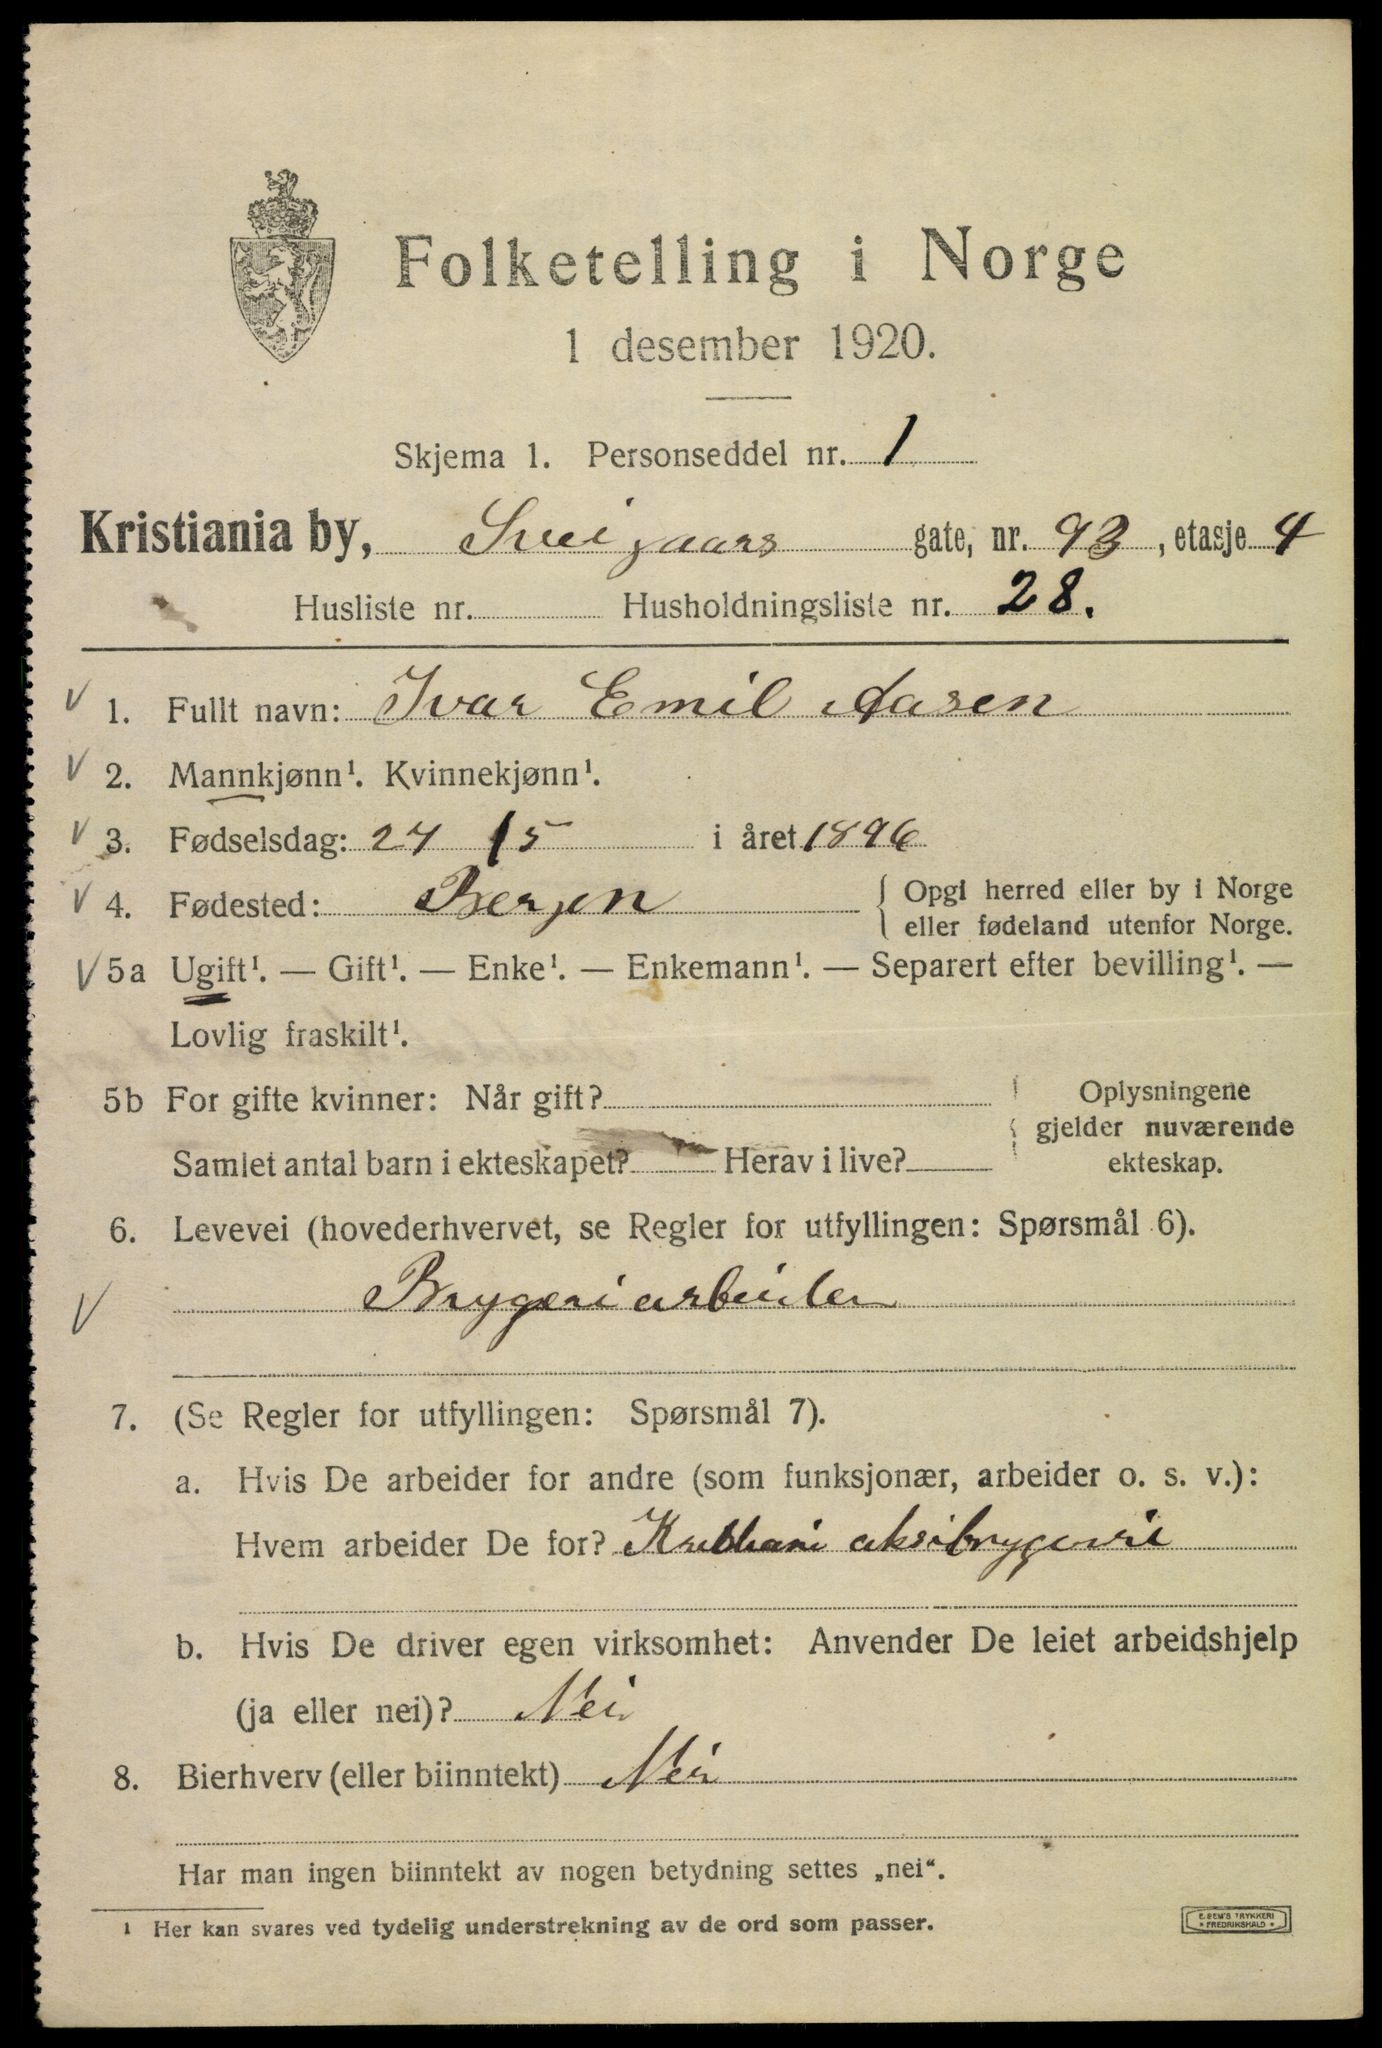 Folketelling i Norge
1 desember 1920.
Skjema 1. Personseddel nr. 1
Kristiania by, Sveigaars gate, nr. 93, etasje 4
Husliste nr. Husholdningsliste nr. 28.
1. Fullt navn: Ivar Emil Aasen
2. Mannkjønn¹. Kvinnekjønn¹.
3. Fødselsdag: 27 / 5 i året 1896
4. Fødested: Bergen { Opgi herred eller by i Norge
eller fødeland utenfor Norge.
5a Ugift¹. — Gift¹. — Enke¹. — Enkemann¹. — Separert efter bevilling¹. —
Lovlig fraskilt¹.
5b For gifte kvinner: Når gift?
Samlet antal barn i ekteskapet? Herav i live?
Oplysningene
gjelder nuværende
ekteskap.
6. Levevei (hovederhvervet, se Regler for utfyllingen: Spørsmål 6).
Brygeriarbeider
7. (Se Regler for utfyllingen: Spørsmål 7).
a. Hvis De arbeider for andre (som funksjonær, arbeider o. s. v.):
Hvem arbeider De for? Kristiani aksibrygeri
b. Hvis De driver egen virksomhet: Anvender De leiet arbeidshjelp
(ja eller nei)? Nei
8. Bierhverv (eller biinntekt) Nei
Har man ingen biinntekt av nogen betydning settes „nei“.
¹ Her kan svares ved tydelig understrekning av de ord som passer.
E. SEM'S TRYKKERI
FREDRIKSHALD